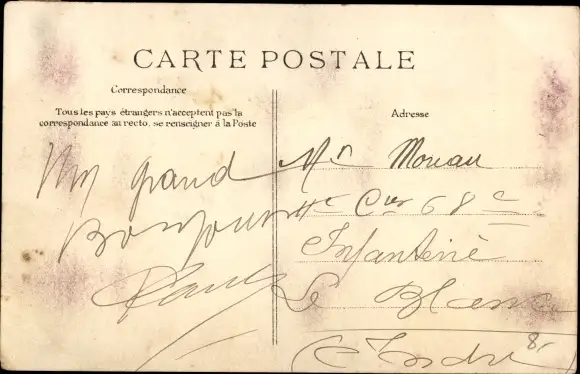 CARTE POSTALE
Correspondance
Tous les pays étrangers n'acceptent pas la
correspondance au recto, se renseigner à la Poste
Un grand
Bonjour
Paul
Adresse
Mr Moreau
Cie 68e
Infanterie
Le Blanc
(Indre)